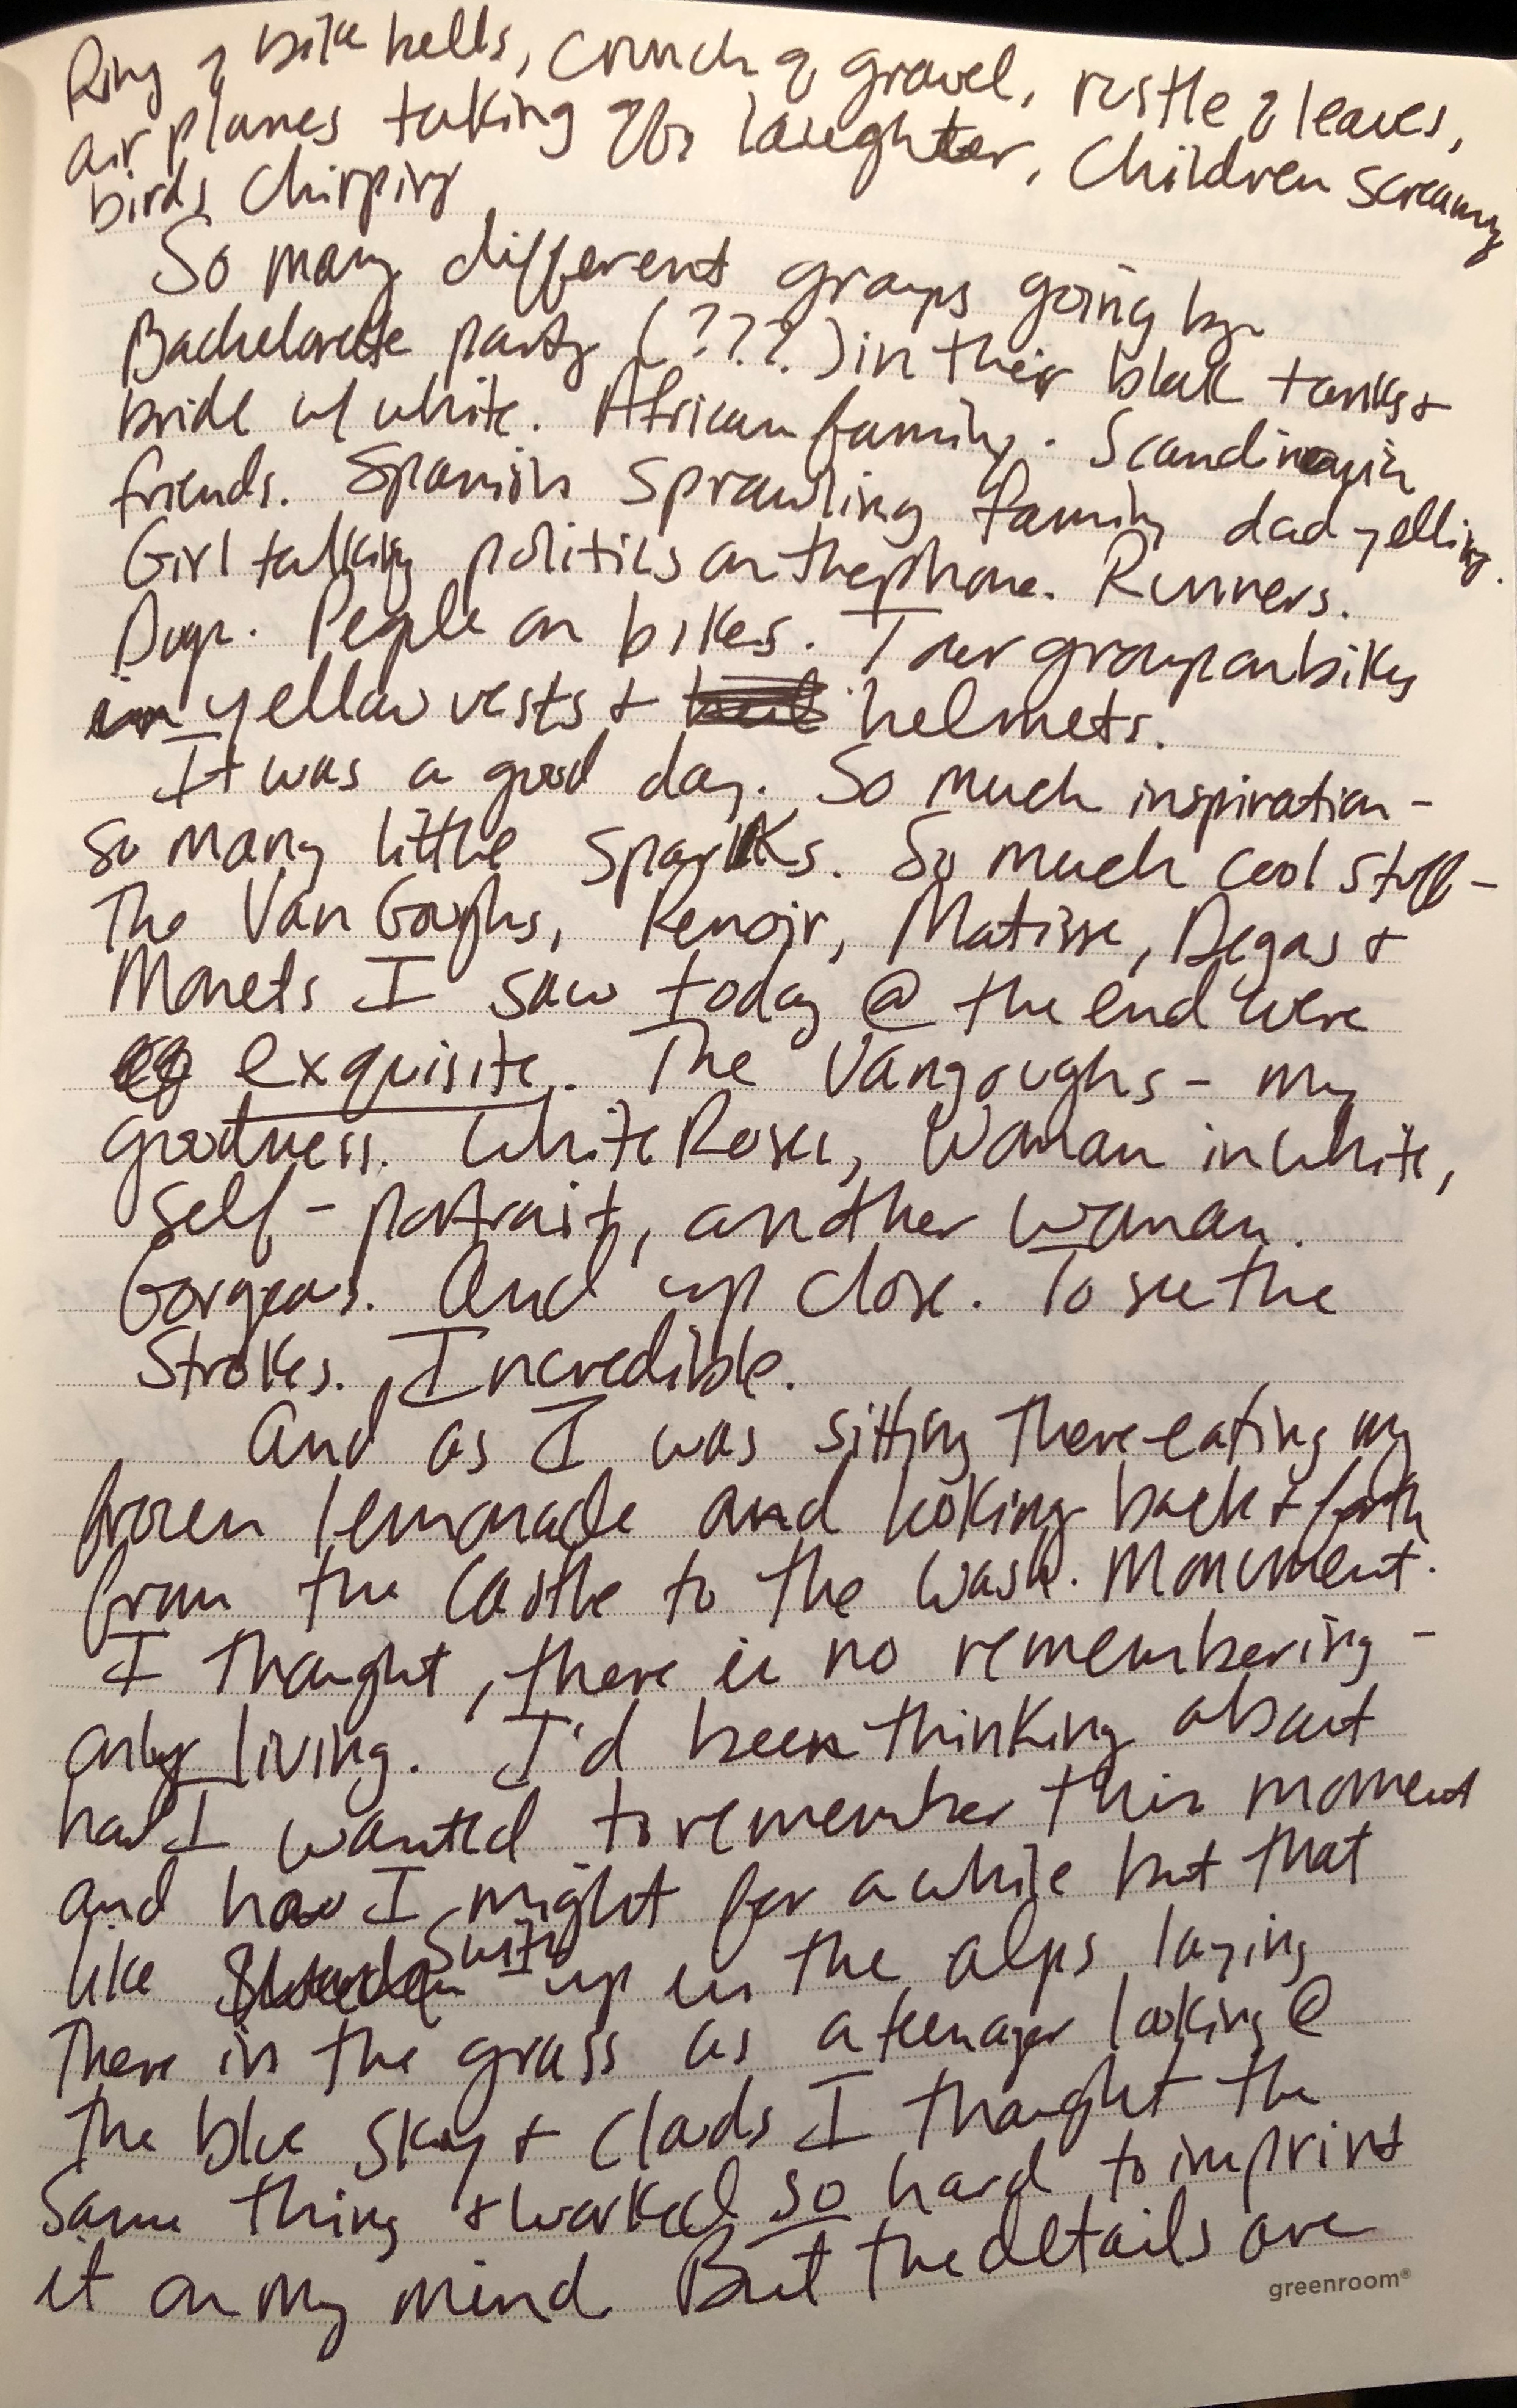 Ring of bike bells, crunch of gravel, rustle of leaves,
airplanes taking off, laughter, children screaming
birds chirping
So many different groups going by.
Bachelorette party (???) in their black tanks +
bride w/ white. African family. Scandinavian
friends. Spanish sprawling family dad yelling.
Girl talking politics on the phone. Runners.
Dogs. People on bikes. Tour group on bikes
in yellow vests + helmets.
It was a good day. So much inspiration -
so many little sparks. So much cool stuff -
The Van Goughs, Renoir, Matisse, Degas +
Monets I saw today @ the end were
exquisite. The Vangoughs - my
goodness. White Roses, Woman in white,
self-portrait, another woman.
Gorgeous. And up close. To see the
strokes. Incredible.
And as I was sitting there eating my
frozen lemonade and looking back + forth
from the castle to the Wash. Monument.
I thought, there is no remembering -
only living. I'd been thinking about
how I wanted to remember this moment
and how I might for a while but that
like Switz up in the alps laying
there in the grass as a teenager looking @
the blue sky + clouds I thought the
same thing + worked so hard to imprint
it on my mind But the details are
greenroom®